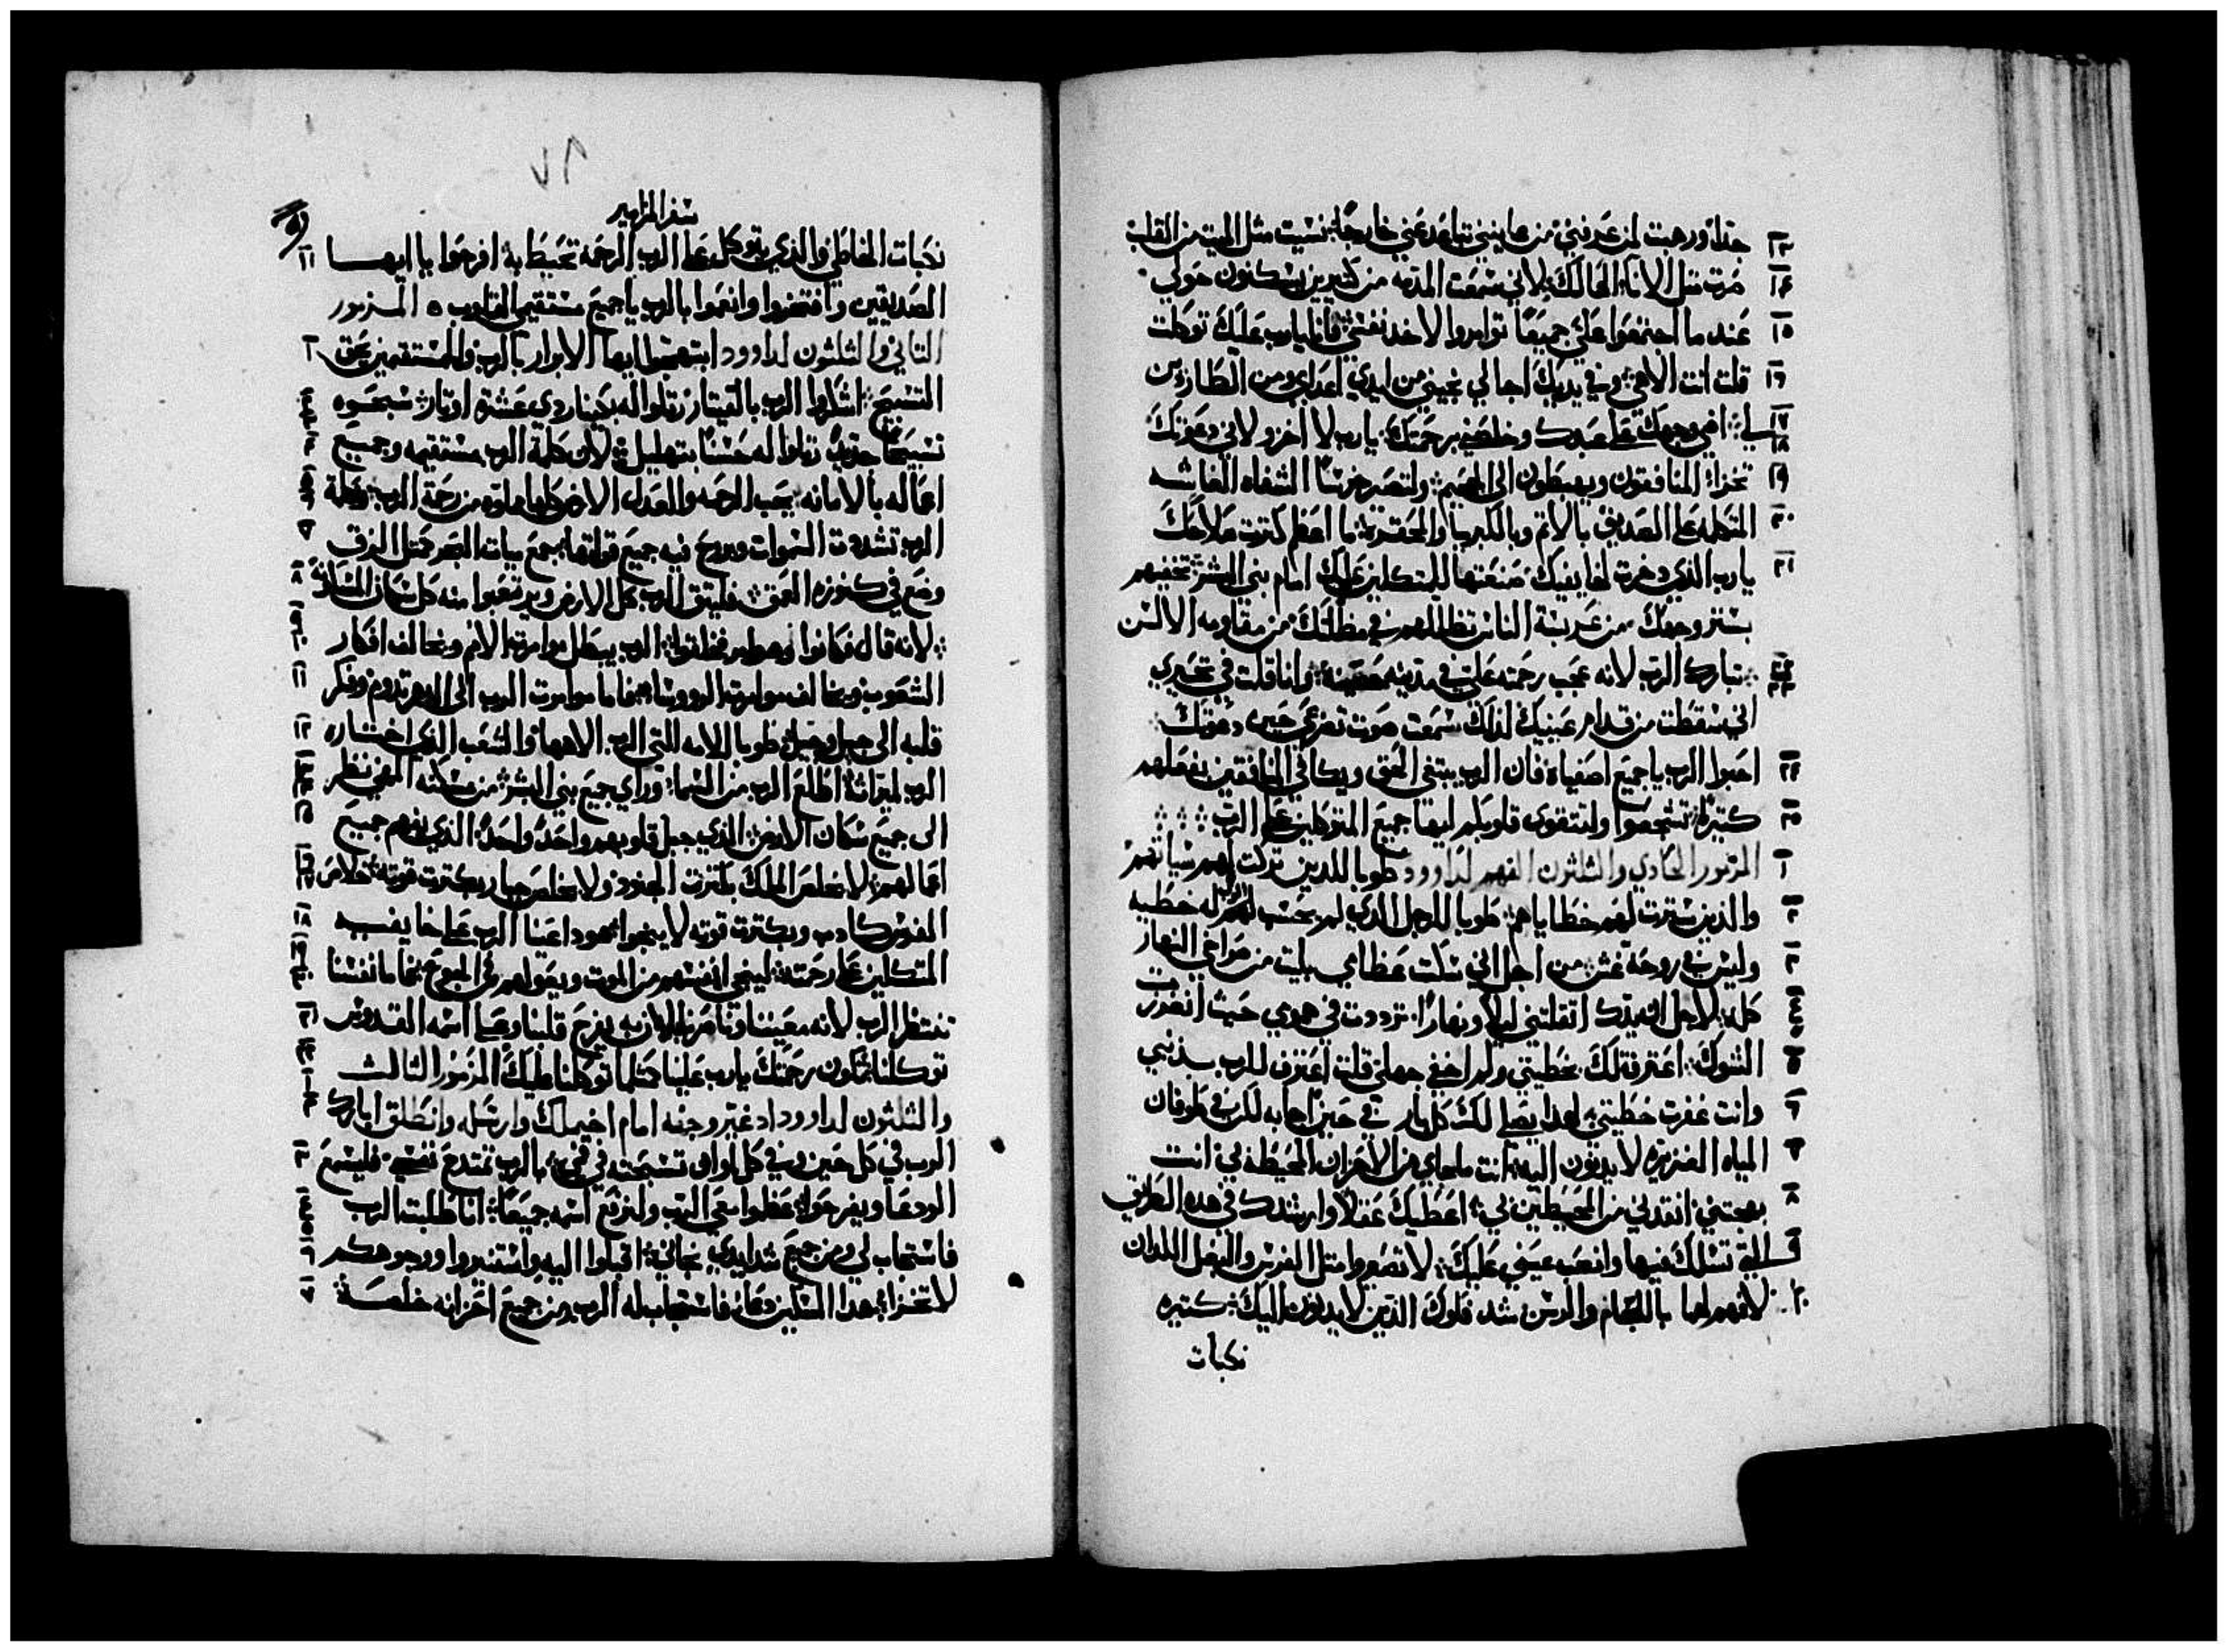 ١٣ جدًا ورهبت لمن عرفني من عاينني تباعد عني خارجًا نسيت مثل الميت من القلب
١٤ صرت مثل الاناء الهالك لاني سمعت المذمه من كثيرين يسكنون حولي
١٥ عند ما اجتمعوا علي جميعًا توامروا لاخد نفسي فانا يارب عليك توكلت
١٦ قلت انت الاهي وفي يديك اجالي نجيني من ايدي اعداي ومن الطاردين
١٧ ١٨ لي اضي وجهك على عبدك وخلصني برحمتك يارب لا اخزو لاني دعوتك
١٩ تخزا المنافقون ويهبطون الى الجحيم ولتصر خرسًا الشفاه الغاشه
٢٠ المتكلمه على الصديق بالاثم وبالكبريا والمحقرة ما اعظم كترت صلاحك
٢١ يارب الذي دخرت لخايفيك صنعتها للمتكلين عليك امام بني البشر تخفيهم
بستر وجهك من عربسة الناس تظللهم في مظلتك من مقاومه الالسن
٢٢ ٢٣ تبارك الرب لانه عجب رحمته علي في مدينه حصينة وانا قلت في تحيري
اني سقطت من قدام عينيك لذلك سمعت صوت تضرعي حين دعوتك
٢٤ احبوا الرب يا جميع اصفياه فان الرب يبتغي الحق ويكافي المنافقين بفعلهم
٢٥ كتيرًا تشجعوا ولتتقوى قلوبكم ايها جميع المتوكلين على الرب
١ المزمور الحادي والثلثون الفهم لداوود طوبا للدين تركت لهم سياتهم
٢ والذين سترت لهم خطاياهم طوبا للرجل الذي لم يحسب الرب له خطيه
٣ وليس في روحه غش من اجل اني سكت عظامي بليت من صراخي النهار
٤ كله لاجل ان يدك اتقلتني ليلًا ونهارًا ترددت في همي حيث انغرزت
٥ الشوك اعترفت لك بخطيتي ولم اخفي جهلي قلت اعترف للرب بذنبي
٦ وانت غفرت خطيتي لهدا يصلي لك كل بار في حين اجابه لكن في طوفان
٧ المياه الغزيره لا يدنون اليه انت ملجاي من الاحزان المحيطة بي انت
٨ بهجتي انقدني من المحيطين بي اعطيك عقلًا وارشدك في هده الطريق
٩ التي تسلك فيها وانصب عيني عليك لا تصيروا مثل الفرس والبغل اللدان
١٠ لا فهم لهما باللجام والرسن شد فكوك الذين لا يدنون اليك كتيره
نكبات
٧٦
سفر المزامير
نكبات الخاطي والذي يتوكل على الرب الرحمه تحيط به افرحوا يا ايها ١١
الصديقين وافتخروا وانعموا بالرب يا جميع مستقيمي القلوب ه المزمور
التاني والثلثون لداوود ابتهجوا ايها الابرار بالرب وللمستقيمين يحق ١
التسبيح اشكروا الرب بالقيتار رتلوا له بكينار دي عشرة اوتار سبحوه ٢ ٣
تسبيحًا جديدًا رتلوا له حسنًا بتهليل لان كلمة الرب مستقيمه وجميع ٤
اعماله بالامانه يحب الرحمه والعدل الارض كلها مملوه من رحمة الرب بكلمة ٥ ٦
الرب تشددت السموات وبروح فيه جميع قواتها يجمع مياه البحر كمثل الزق ٧
وضع في كنوزه العمق فليتق الرب كل الارض وليرتعبوا منه كل سكان المسكونة ٨
لانه قال فكانوا وهو امر فخلقوا الرب يبطل موامرت الامم ويخالف افكار ٩ ١٠
الشعوب ويخالف موامرت الروسا فاما موامرت الرب الى الدهر تدوم وفكر ١١
قلبه الى جيل وجيل طوبا للامه اللتي الرب الاهها والشعب الذي اختاره ١٢
الرب لميراثه اطلع الرب من السما وراي جميع بني البشر من مسكنه المهي نظر ١٣ ١٤
الى جميع سكان الارض الذي جبل قلوبهم واحدًا واحدًا الذي يفهم جميع ١٥
اعمالهم لا يخلص الملك بكترت الجنود ولا يخلص جبار بكترت قوته خلاص ١٦ ١٧
الفرس كادب وبكترت قوته لا ينجوا هودا عينا الرب على خايفيه ١٨
المتكلين على رحمته لينجي انفسهم من الموت ويعولهم في الجوع فاما نفسنا ١٩ ٢٠
تنتظر الرب لانه معيننا وناصرنا لان به يفرح قلبنا وعلى اسمه القدوس ٢١
توكلنا فلتكون رحمتك يارب علينا كمثل ما توكلنا عليك المزمور الثالث ٢٢
والثلثون لداوود اد غير وجهه امام اخيملك وارسله وانطلق ابارك ١ ٢
الرب في كل حين وفي كل اوان تسبحته في فمي بالرب تمتدح نفسي فليسمع ٣
الودعا ويفرحوا عظموا معي الرب ولنرفع اسمه جميعًا انا طلبت الرب ٤ ٥
فاستجاب لي ومن جميع شدايدي نجاني اقبلوا اليه واستنيروا ووجوهكم ٦
لا تخزا هدا المسكين دعا فاستجاب له الرب ومن جميع احزانه خلصه ٧